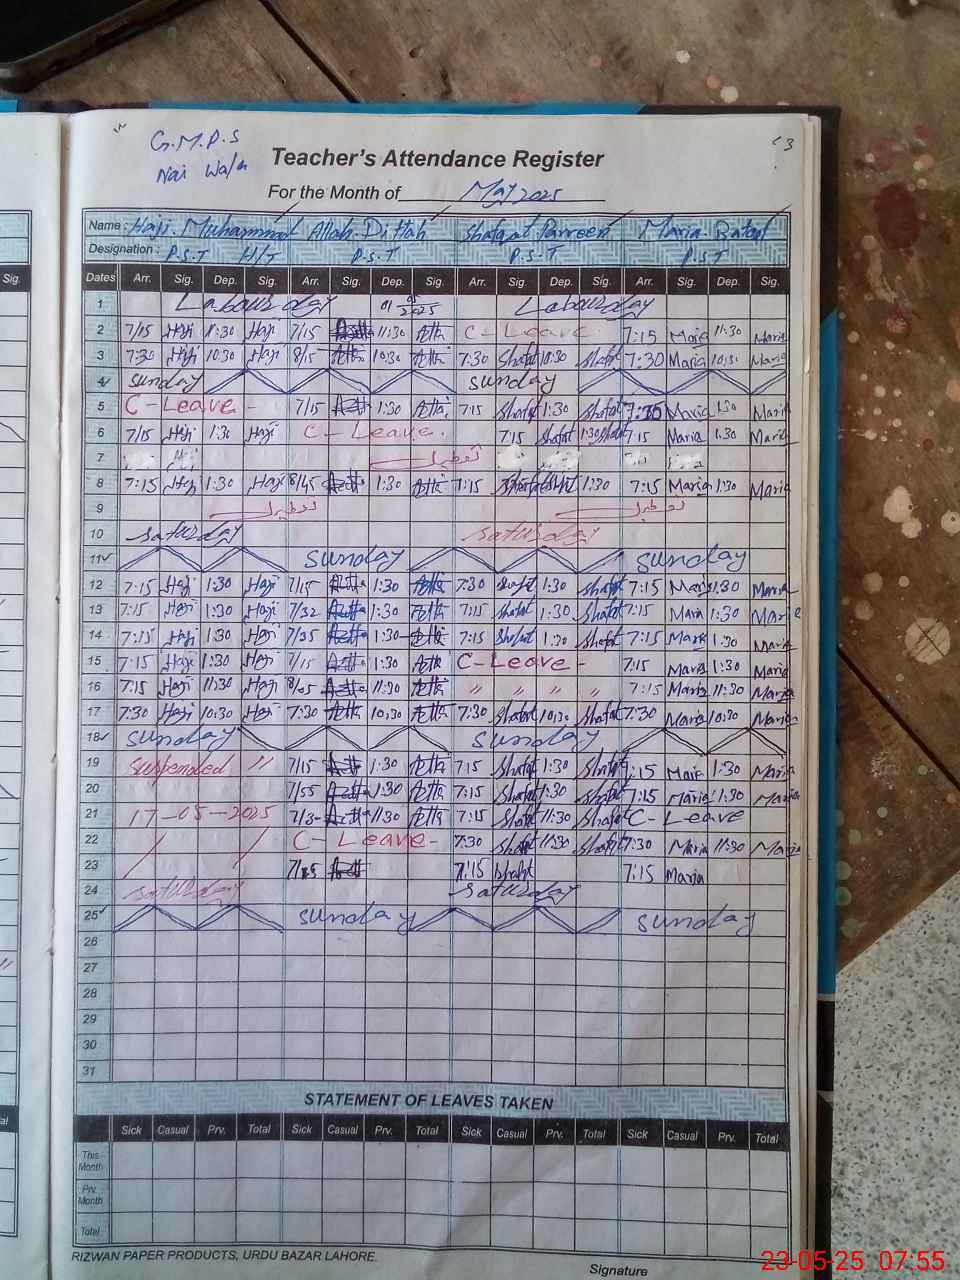 G.M.P.S
Nai Wala
Teacher's Attendance Register
For the Month of May 2025
Name : Haji. Muhammad Allah Dittah Shafqat Parveen Maria Batool
Designation : P.S.T H/T P.S.T P.S.T P.S.T
Sig. Dates Arr. Sig. Dep. Sig. Arr. Sig. Dep. Sig. Arr. Sig. Dep. Sig. Arr. Sig. Dep. Sig.
1 Labour day 01 05 2025 Labour day
2 7/15 Haji 11:30 Haji 7/15 11:30 Atta C-Leave 7:15 Maria 11:30 Maria
3 7:30 Haji 10:30 Haji 8/15 Atta 10:30 Atta 7:30 Shafqt 10:30 Shafqt 7:30 Maria 10:30 Maria
4 Sunday Sunday
5 C-Leave - 7/15 1:30 Atta 7:15 Shafqt 1:30 Shafqt Maria 1:30 Maria
6 7/15 Haji 1:30 Haji C-Leave. 7:15 Shafqt 1:30 Shafqt 7:15 Maria 1:30 Maria
7 Haji تعطیل
8 7:15 Haji 1:30 Haji 8/45 1:30 Atta 7:15 1:30 7:15 Maria 1:30 Maria
9 تعطیل تعطیل
10 Saturday Saturday
11 Sunday Sunday
12 7:15 Haji 1:30 Haji 7/15 1:30 Atta 7:30 Shafqt 1:30 Shafqt 7:15 Maria 1:30 Maria
13 7:15 Haji 1:30 Haji 7/32 1:30 Atta 7:15 Shafqt 1:30 Shafqt 7:15 Maria 1:30 Maria
14 7:15 Haji 1:30 Haji 7/35 1:30 Atta 7:15 Shafqt 1:30 Shafqt 7:15 Maria 1:30 Maria
15 7:15 Haji 1:30 Haji 7/15 1:30 Atta C-Leave - 7:15 Maria 1:30 Maria
16 7:15 Haji 11:30 Haji 8/05 11:30 Atta " " " " 7:15 Maria 11:30 Maria
17 7:30 Haji 10:30 Haji 7:30 Atta 10:30 Atta 7:30 Shafqt 10:30 Shafqt 7:30 Maria 10:30 Maria
18 Sunday Sunday
19 Suspended " 7/15 1:30 Atta 7:15 Shafqt 1:30 Shafqt 7:15 Maria 1:30 Maria
20 7/55 1:30 Atta 7:15 Shafqt 1:30 Shafqt 7:15 Maria 1:30 Maria
21 17-05-2025 11:30 Atta 7:15 Shafqt 11:30 Shafqt C-Leave
22 C-Leave - 7:30 Shafqt 11:30 Shafqt 7:30 Maria 11:30 Maria
23 7:15 Shafqt 7:15 Maria
24 Saturday Saturday
25 Sunday Sunday
26
27
28
29
30
31
STATEMENT OF LEAVES TAKEN
Sick Casual Prv. Total Sick Casual Prv. Total Sick Casual Prv. Total Sick Casual Prv. Total
This Month
Prv. Month
Total
RIZWAN PAPER PRODUCTS, URDU BAZAR LAHORE.
Signature
23-05-25 07:55